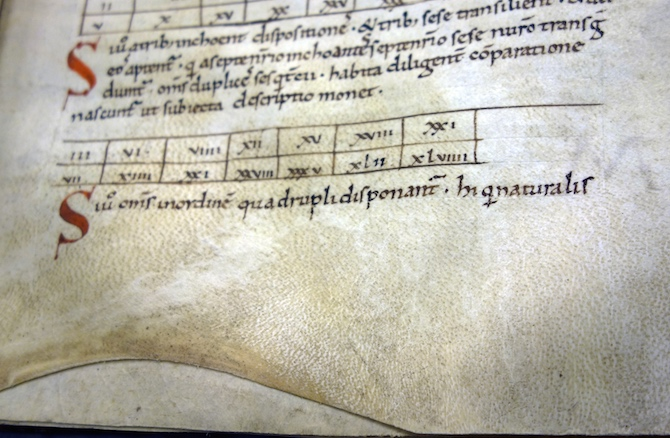 ii
v x xv xx xxv
Siũ a trib; inchoent dispositionē · & trib; sese transilient
eoꝝ aptent̃ · q̃ a septenr̃io inchoantes septenr̃io sese num̃o transg
diunt̃ · om̃s duplices sesq̃t̃cu · habita diligent̃ cõparatione
nascunt̃ ut subiecta descriptio monet ·
iii vi · viiii xii xv xviii xxi
vii xiiii xxi xxviii xxxv xlii xlviiii
Siũ om̃s in ordinē quadrupli disponant̃ · hi q̃ naturalis